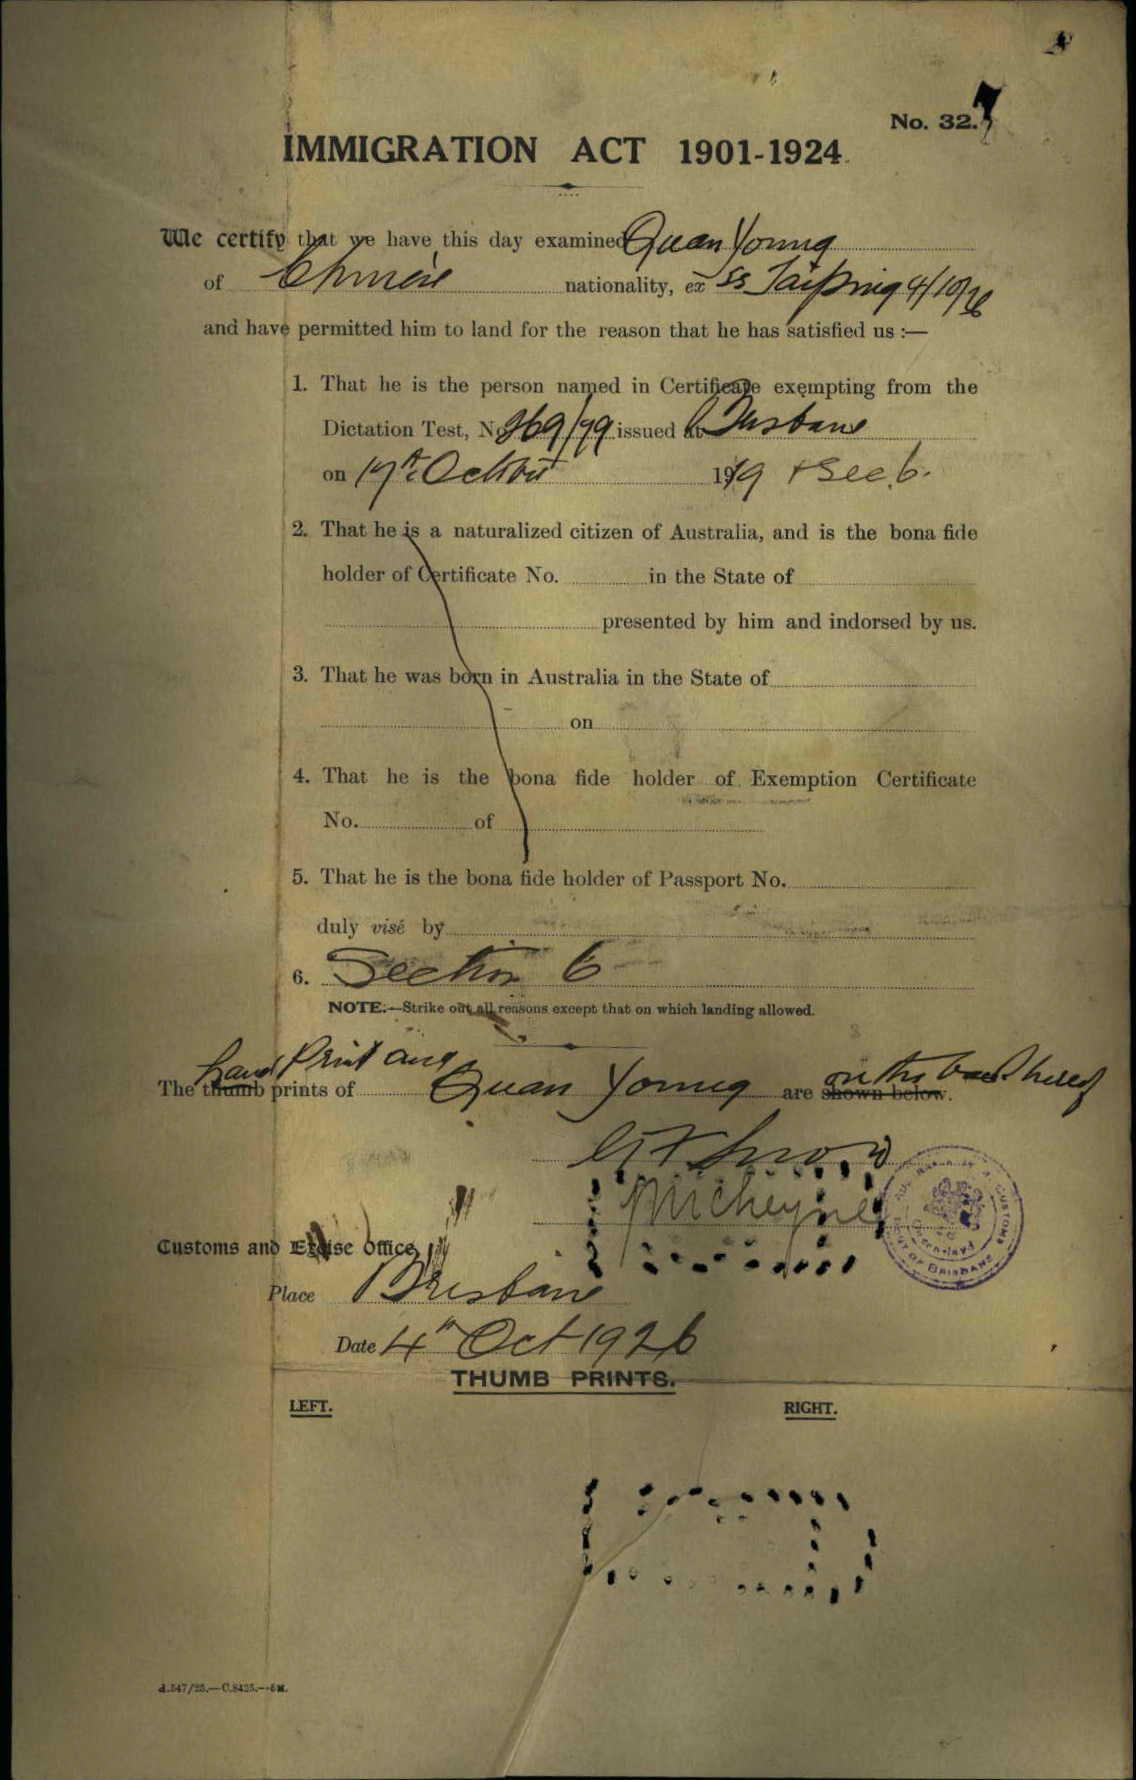 No. 32.
IMMIGRATION ACT 1901-1924.
We certify that we have this day examined Quan Young
of Chinese nationality, ex SS Taiping 4/10/26
and have permitted him to land for the reason that he has satisfied us :—
1. That he is the person named in Certificate exempting from the
Dictation Test, No. 269/79 issued at Brisbane
on 17th October 1919 + Sec. 6.
2. That he is a naturalized citizen of Australia, and is the bona fide
holder of Certificate No. in the State of
presented by him and indorsed by us.
3. That he was born in Australia in the State of
on
4. That he is the bona fide holder of Exemption Certificate
No. of
5. That he is the bona fide holder of Passport No.
duly visé by
6. Section 6
NOTE.—Strike out all reasons except that on which landing allowed.
hand Print and on the back hereof
The thumb prints of Quan Young are shown below.
Customs and Excise Office,
Place Brisbane
Date 4th Oct 1926
THUMB PRINTS.
LEFT. RIGHT.
A.547/25.—C.8425.—5M.